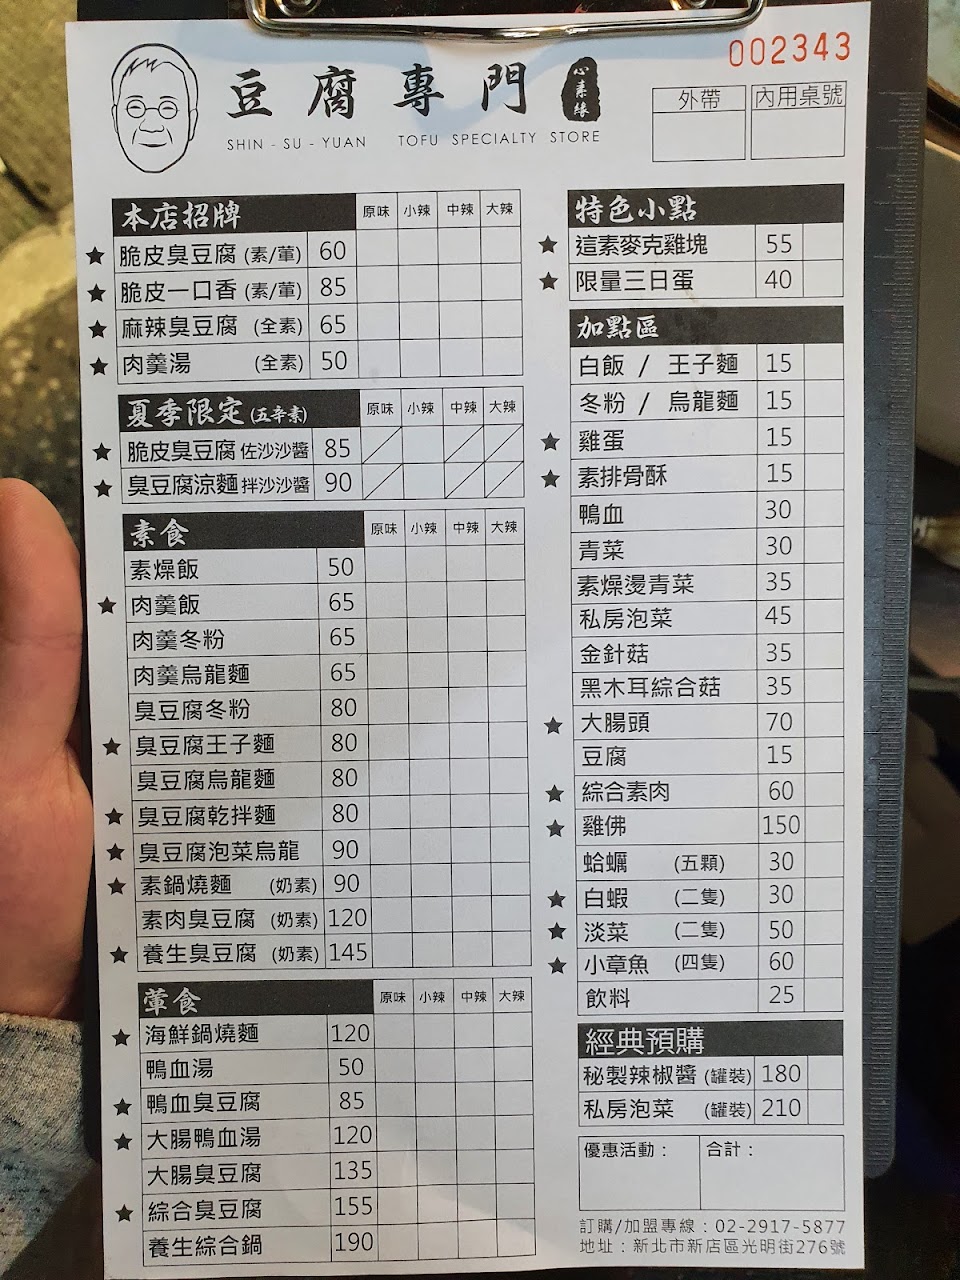 002343
豆腐專門
心素緣
SHIN - SU - YUAN TOFU SPECIALTY STORE
外帶 內用桌號
本店招牌 原味 小辣 中辣 大辣
★ 脆皮臭豆腐 (素/葷) 60
★ 脆皮一口香 (素/葷) 85
★ 麻辣臭豆腐 (全素) 65
★ 肉羹湯 (全素) 50
夏季限定(五辛素) 原味 小辣 中辣 大辣
★ 脆皮臭豆腐 佐沙沙醬 85
★ 臭豆腐涼麵 拌沙沙醬 90
素食 原味 小辣 中辣 大辣
素燥飯 50
★ 肉羹飯 65
肉羹冬粉 65
肉羹烏龍麵 65
臭豆腐冬粉 80
★ 臭豆腐王子麵 80
臭豆腐烏龍麵 80
★ 臭豆腐乾拌麵 80
★ 臭豆腐泡菜烏龍 90
★ 素鍋燒麵 (奶素) 90
素肉臭豆腐 (奶素) 120
★ 養生臭豆腐 (奶素) 145
葷食 原味 小辣 中辣 大辣
★ 海鮮鍋燒麵 120
鴨血湯 50
★ 鴨血臭豆腐 85
★ 大腸鴨血湯 120
大腸臭豆腐 135
★ 綜合臭豆腐 155
養生綜合鍋 190
特色小點
★ 這素麥克雞塊 55
★ 限量三日蛋 40
加點區
白飯 / 王子麵 15
冬粉 / 烏龍麵 15
★ 雞蛋 15
★ 素排骨酥 15
鴨血 30
青菜 30
素燥燙青菜 35
私房泡菜 45
金針菇 35
黑木耳綜合菇 35
★ 大腸頭 70
豆腐 15
★ 綜合素肉 60
★ 雞佛 150
蛤蠣 (五顆) 30
★ 白蝦 (二隻) 30
★ 淡菜 (二隻) 50
★ 小章魚 (四隻) 60
飲料 25
經典預購
秘製辣椒醬 (罐裝) 180
私房泡菜 (罐裝) 210
優惠活動： 合計：
訂購/加盟專線：02-2917-5877
地址：新北市新店區光明街276號